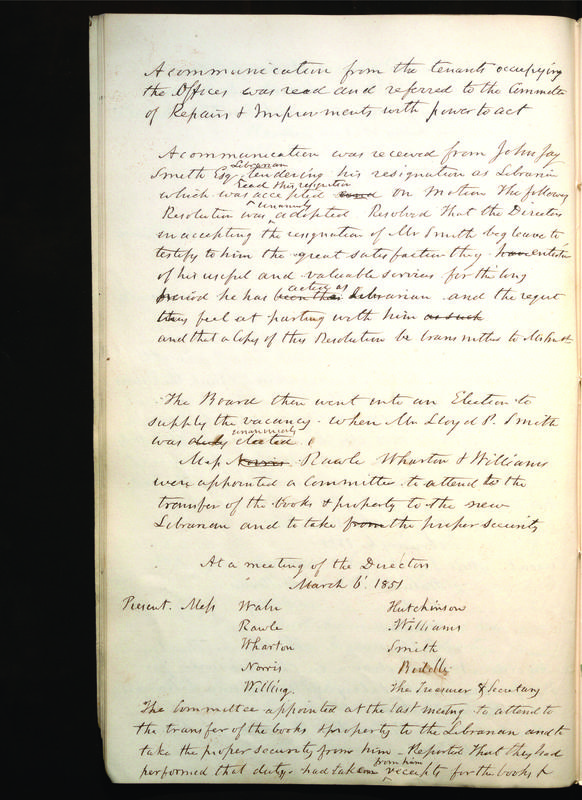 A communication from the tenants occupying
the Offices was read and referred to the Committe
of Repairs & Improvments with power to act
A communication was received from John Jay
Smith Esq. Librarian tendering his resignation as Librarian
which was read this resignation accepted and on motion the following
Resolution was unanimously adopted Resolved That the Directors
in accepting the resignation of Mr Smith beg leave to
testify to him the great satisfaction they have entertain
of his useful and valuable services for the long
period he has been their acted as Librarian and the regret
they feel at parting with him as such
and that a Copy of this Resolution be transmitted to Mr Smith
The Board then went into an Election to
supply the vacancy - when Mr Lloyd P. Smith
was duly unanimously elected.
Mess Norris Rawle Wharton & Williams
were appointed a Committee to attend to the
transfer of the books & property to the new
Librarian and to take from the proper security
At a meeting of the Directors
March 6' 1851
Present. Mess Waln Hutchinson
Rawle Williams
Wharton Smith
Norris
Willing. The Treasurer & Secretary
The Committee appointed at the last meeting to attend to
the transfer of the books & property to the Librarian and to
take the proper security from him - Reported That they had
performed that duty - had taken from him receipts for the books &